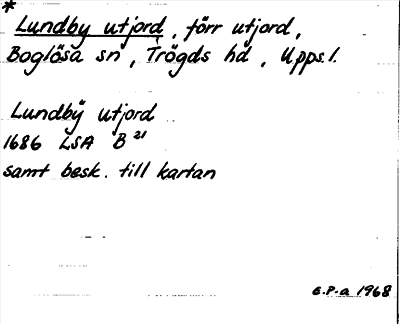 * Lundby utjord, förr utjord,
Boglösa sn, Trögds hd, Upps. l.
Lundbÿ utjord
1686 LSA B 21
samt besk. till kartan
E.P-a 1968